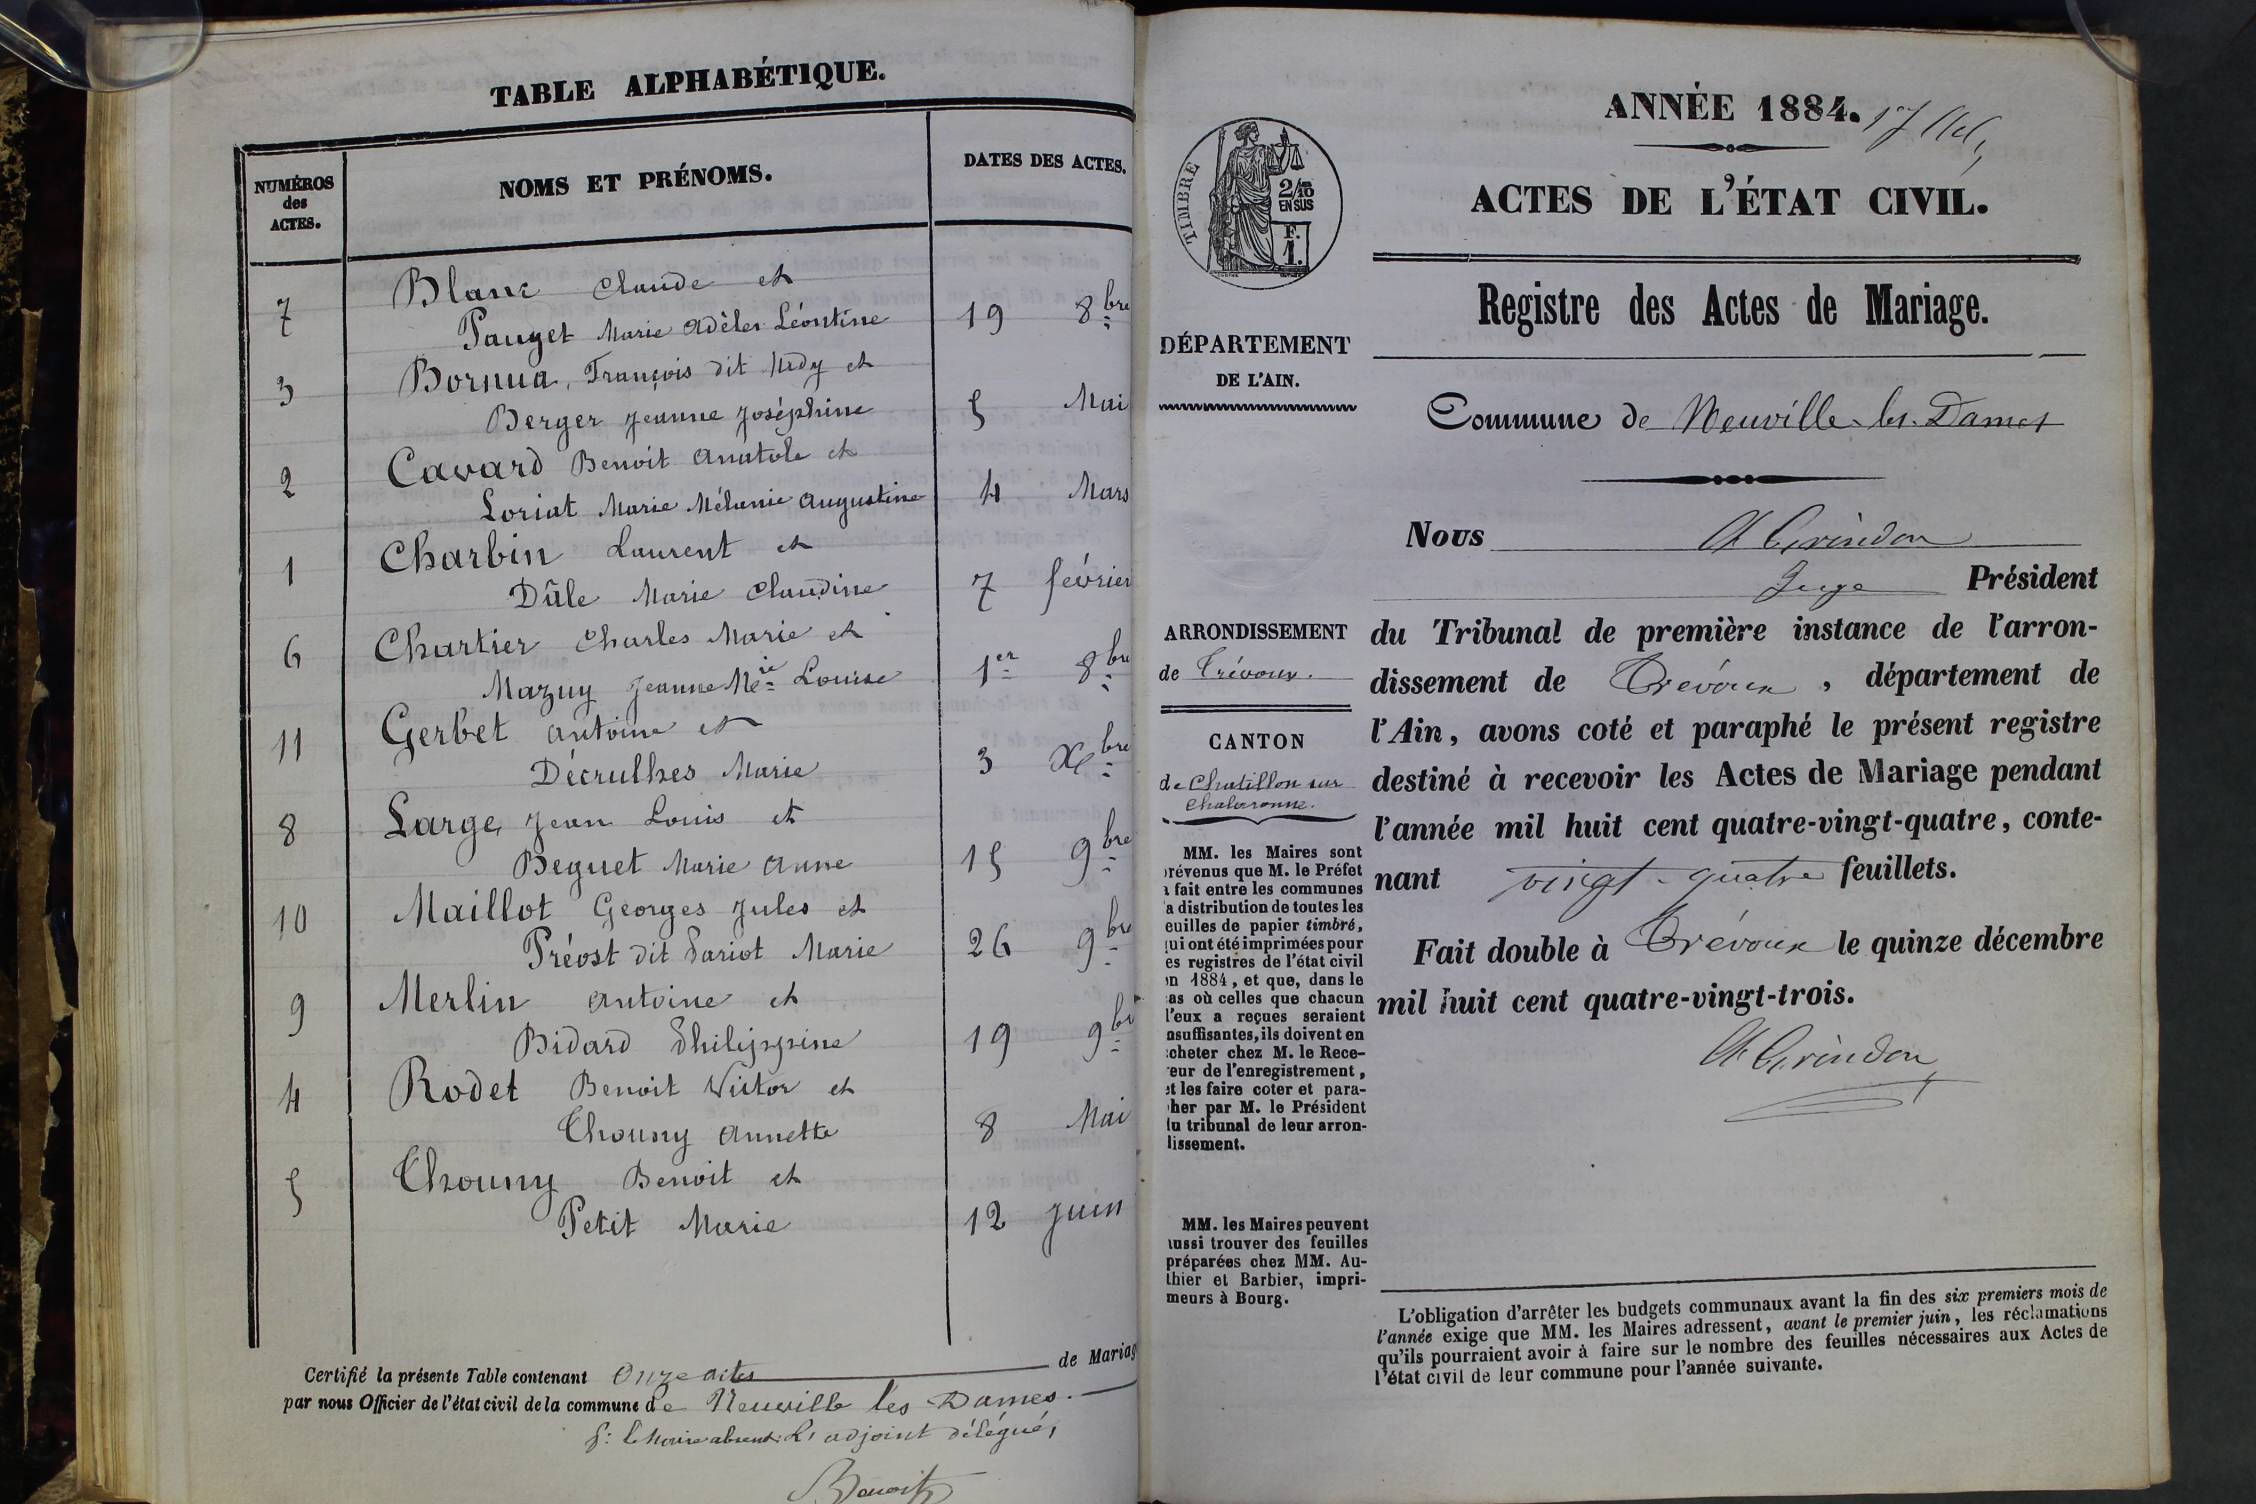 TABLE ALPHABÉTIQUE.
NUMÉROS
des
ACTES.
NOMS ET PRÉNOMS.
DATES DES ACTES.
7 Blanc Claude et
Pauget Marie Adèle Léontine 19 8bre
3 Bornua, François dit Nedy et
Berger Jeanne Joséphine 5 Mai
2 Cavard Benoit Anatole et
Loriat Marie Mélanie Augustine 4 Mars
1 Charbin Laurent et
Dûle Marie Claudine 7 février
6 Chartier Charles Marie et
Mazuy Jeanne Mie Louise 1er 8bre
11 Gerbet Antoine et
Décrulhes Marie 3 Xbre
8 Large, Jean Louis et
Beguet Marie Anne 15 9bre
10 Maillot Georges Jules et
Préost dit Pariot Marie 26 9bre
9 Merlin Antoine et
Bidard Philippine 19 9br
4 Rodet Benoit Victor et
Chouny Annette 8 Mai
5 Chouny Benoit et
Petit Marie 12 Juin
Certifié la présente Table contenant Onze actes de Mariag
par nous Officier de l'état civil de la commune de Neuville les Dames.
p: le Maire absent: L'adjoint délégué,
Benoit
ANNÉE 1884.
ACTES DE L'ÉTAT CIVIL.
TIMBRE
2/10
EN SUS
F.
1.
Registre des Actes de Mariage.
DÉPARTEMENT
DE L'AIN.
Commune de Neuville-les-Dames
Nous A Grindon
Juge Président
du Tribunal de première instance de l'arron-
dissement de Trévoux, département de
l'Ain, avons coté et paraphé le présent registre
destiné à recevoir les Actes de Mariage pendant
l'année mil huit cent quatre-vingt-quatre, conte-
nant vingt-quatre feuillets.
Fait double à Trévoux le quinze décembre
mil huit cent quatre-vingt-trois.
A Grindon
ARRONDISSEMENT
de Trévoux.
CANTON
de Chatillon sur
Chalaronne.
MM. les Maires sont
révenus que M. le Préfet
a fait entre les communes
a distribution de toutes les
euilles de papier timbré,
qui ont été imprimées pour
es registres de l'état civil
en 1884, et que, dans le
as où celles que chacun
l'eux a reçues seraient
nsuffisantes, ils doivent en
cheter chez M. le Rece-
eur de l'enregistrement,
et les faire coter et para-
her par M. le Président
du tribunal de leur arron-
lissement.
MM. les Maires peuvent
ussi trouver des feuilles
préparées chez MM. Au-
thier et Barbier, impri-
meurs à Bourg.
L'obligation d'arrêter les budgets communaux avant la fin des six premiers mois de
l'année exige que MM. les Maires adressent, avant le premier juin, les réclamations
qu'ils pourraient avoir à faire sur le nombre des feuilles nécessaires aux Actes de
l'état civil de leur commune pour l'année suivante.